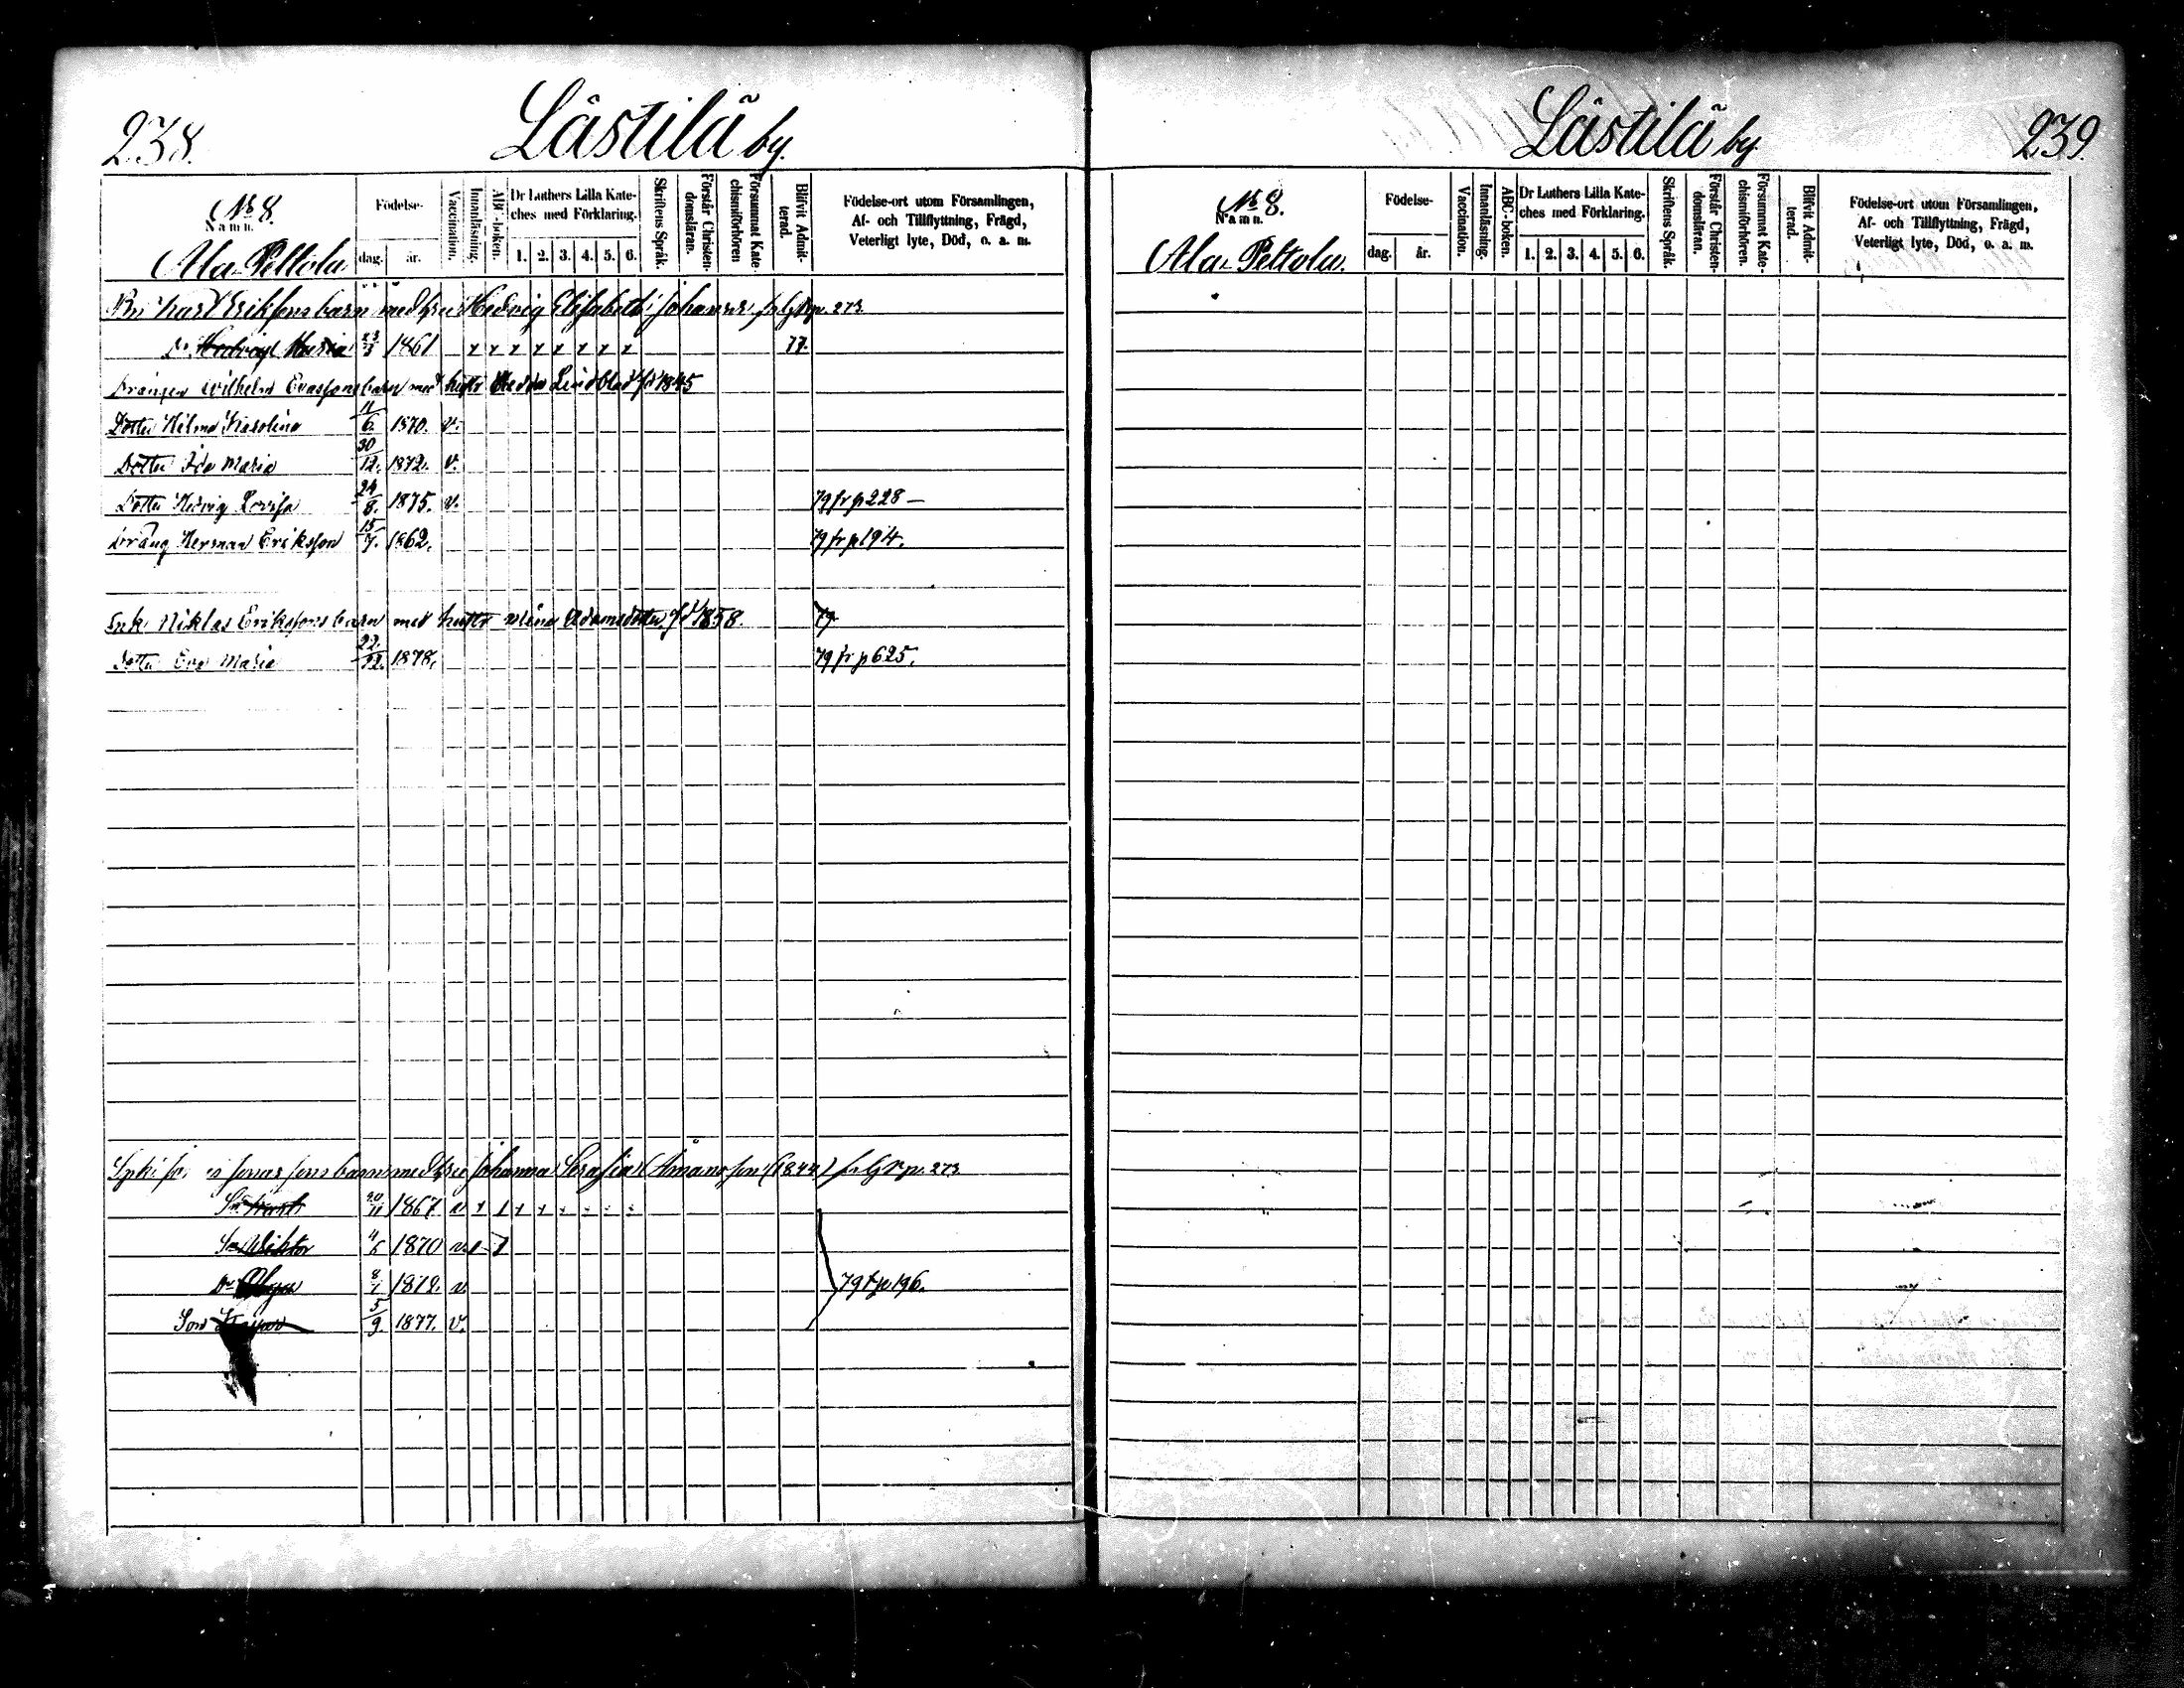 238.
Lästilä by.
No 8.
Namn.
Ala Peltola
Födelse-
dag.
år.
Vaccination.
Innanläsning.
ABC-boken.
Dr Luthers Lilla Kate-
ches med Förklaring.
1. 2. 3. 4. 5. 6.
Skriftens Språk.
Förstår Christen-
domsläran.
Försummat Kate-
chismiförhören
Blifvit Admit-
terad.
Födelse-ort utom Församlingen,
Af- och Tillflyttning, Frägd,
Veterligt lyte, Död, o. a. m.
Erikssons barn med Hedvig Elisabeth p. 273
Dr Hedvig Maria 23/3 1861 x x x x x x x x 77.
Drängen Wilhelm barn med hustr Hedda Lindblad fd 1845
Dotter Hilma Karolina 11/6. 1870. v.
Dotter Ida Maria 30/12. 1872. v.
Dotter Hedvig Lovisa 24/8. 1875. v. 79 fr p 228 —
Dräng Herman Eriksson 15/7. 1862. 79 fr p 194.
Niklas Erikssons barn med hustr Adamsdotter fd 1858. 79
Dotter Eva Maria 22/12. 1878. 79 fr p 625.
barn med Johanna (1844) p. 273
Sn 20/11 1867 v
Sn Viktor 4/5 1870 v
Dr 8/1 1872. v. 79 t p 196.
Son 5/9. 1877. v.
Lästilä by
239.
No 8.
Namn.
Ala Peltola.
Födelse-
dag.
år.
Vaccination.
Innanläsning.
ABC-boken.
Dr Luthers Lilla Kate-
ches med Förklaring.
1. 2. 3. 4. 5. 6.
Skriftens Språk.
Förstår Christen-
domsläran.
Försummat Kate-
chismiförhören.
Blifvit Admit-
terad.
Födelse-ort utom Församlingen,
Af- och Tillflyttning, Frägd,
Veterligt lyte, Död, o. a. m.